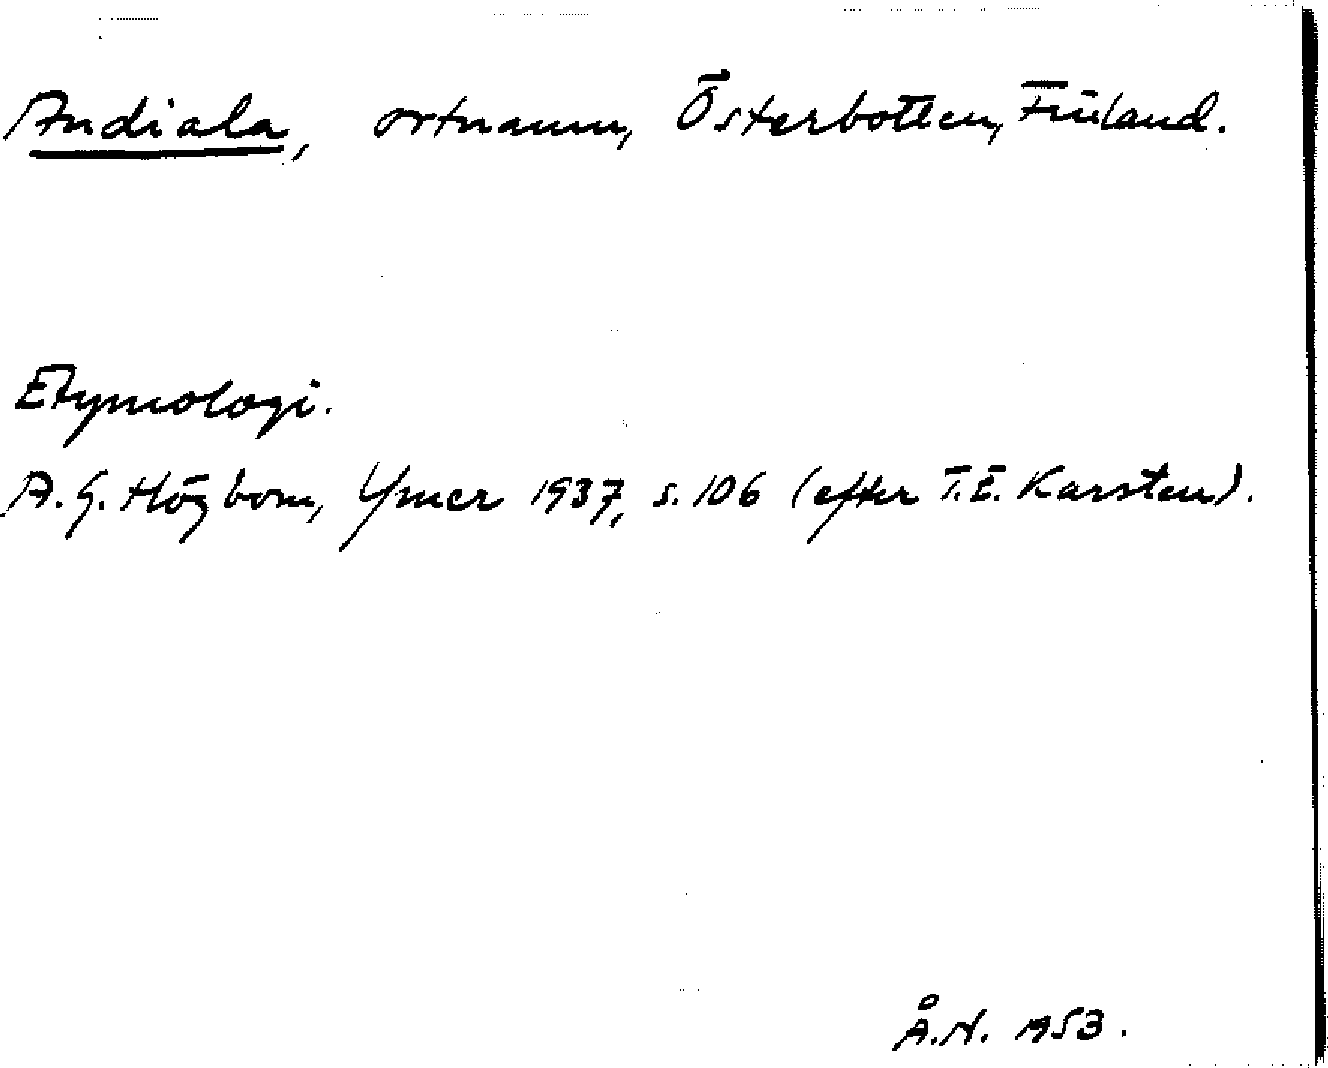 Andiala, ortnamn, Österbotten, Finland.
Etymologi.
A.G. Högbom, Ymer 1937, s. 106 (efter T.E. Karsten).
Å.N. 1953.